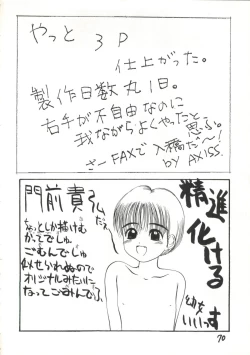 やっと 3P
仕上がった。
製作日数丸1日。
右手が不自由なのに
我ながらよくやったと思ふ。
さーFAXで入稿だ〜!
by AXISS.
門前貴弘だょ
ちょっとしか描けむ
かってでじゅ
ごむんでじゅ
似せられぬので
オリジナルみたいに
なってごみんで
精進
化ける
いいっす
70